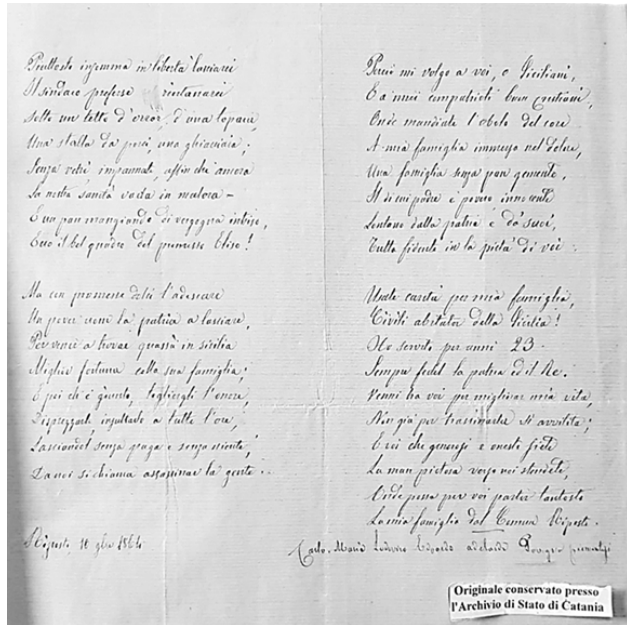 Piuttosto insomma in libertà lasciarci
Il sindaco preferse rintanarci
Sotto un tetto d'orror, d'una topaia,
Una stalla da porci, una ghiacciaia;
Senza vetri impannati, affin che ancora
La nostra sanità vada in malora –
E un pan mangiando di vergogna intriso,
Ecco il bel quadro del promesso Eliso!
Ma con promesse datu l'adescare
Un pover uom la patria a lasciare,
Per venir a trovar quassù in sicilia
Miglior fortuna colla sua famiglia;
E poi ch'è giunto, togliergli l'onore,
Disprezzarlo insultarlo a tutte l'ore,
Lasciandol senza paga e senza niente,
Da noi si chiama assassinar la gente.
Riposto 18 gbre 1864
Perciò mi volgo a voi, o Siciliani,
E a miei compatrioti buon cristiani,
Onde mandiate l'obolo del core
A mia famiglia immersa nel dolore,
Una famiglia senza pan gemente,
Il di cui padre è povero innocente
Lontano dalla patria e da' suoi,
Tutta fidente in la pietà di voi.
Usate carità per mia famiglia,
Civili abitator della Sicilia!
Ho servito per anni 23
Sempre fedel la patria ed il Re.
Venni tra voi per migliorar mia vita,
Non già per trascinarla sì avvilita;
E voi che generosi e onesti siete
La man pietosa verso noi stendete,
Onde possa per voi partir tantosto
La mia famiglia dal Comun Riposto.
Carlo Maria Lodovico Edoardo adelaide
Originale conservato presso
l'Archivio di Stato di Catania